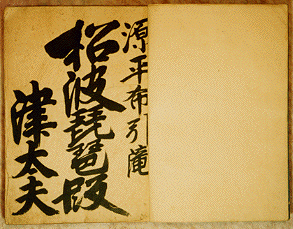 源平布引滝
松波琵琶段
津太夫